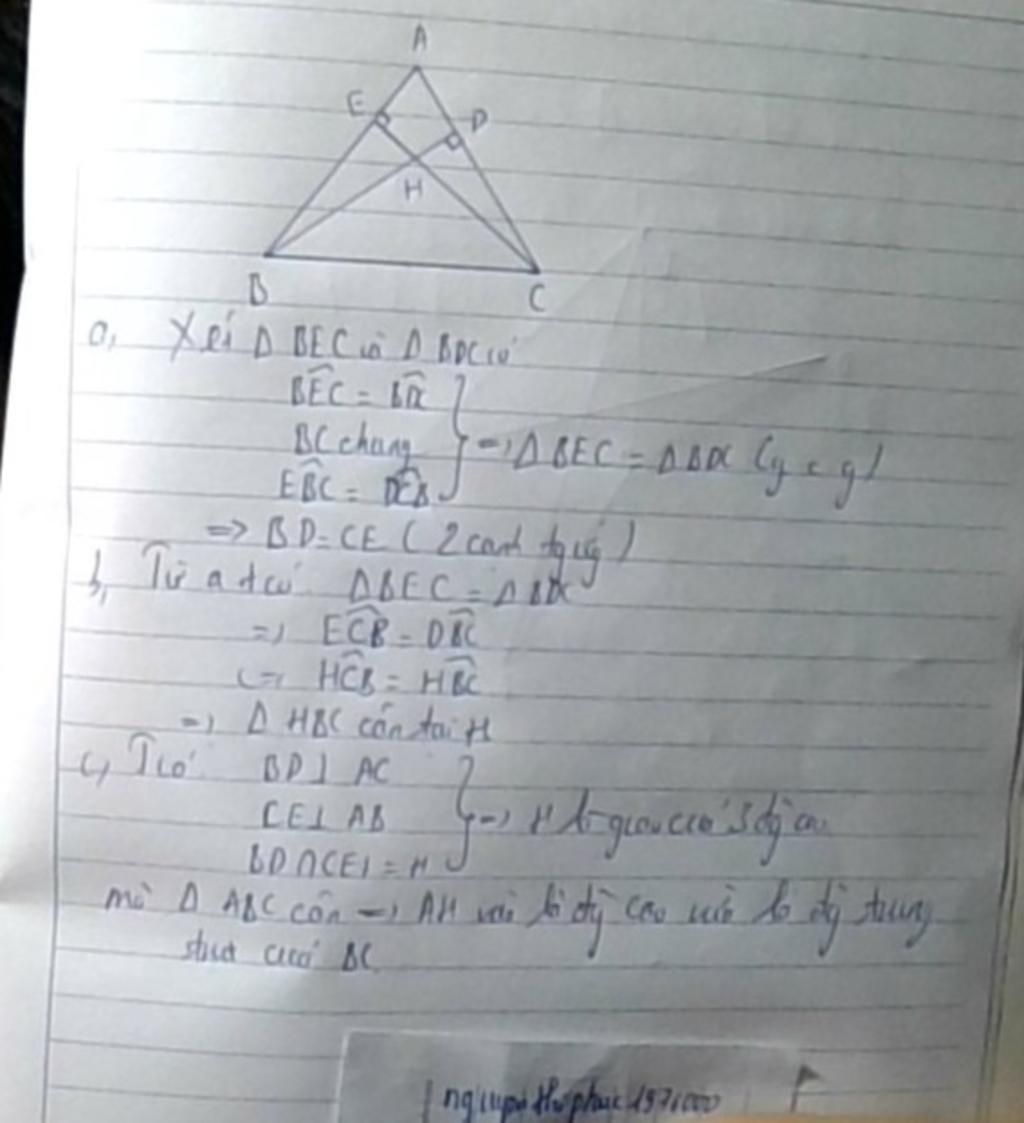 A
E
D
H
B
C
a, Xét Δ BEC và Δ BDC có
BEC = BDC
BC chung
EBC = DCB
=> Δ BEC = Δ BDC (g c g)
=> BD = CE (2 cạnh tg ứg)
b, Từ a t có Δ BEC = Δ BDC
=> ECB = DBC
<=> HCB = HBC
=> Δ HBC cân tại H
c, T có BD ⊥ AC
CE ⊥ AB
BD ∩ CE = H
=> H là giao của 3 đg cao
mà Δ ABC cân => AH vừa là đg cao vừa là đg trung
trực của BC